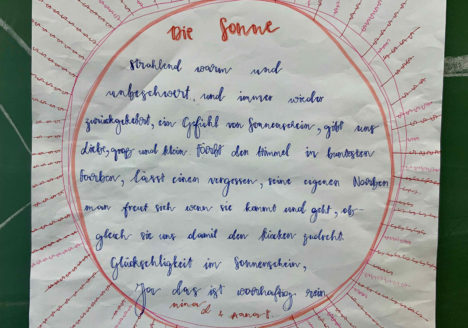 Die Sonne
Strahlend warm und
unbeschwert, und immer wieder
zurückgekehrt, ein Gefühl von Sonnenschein, gibt uns
Liebe, groß und klein färbt den Himmel in buntesten
Farben, lässt einen vergessen, seine eigenen Narben
man freut sich wenn sie kommt und geht, ob-
gleich sie uns damit den Rücken zudreht.
Glückseligkeit im Sonnenschein,
Ja das ist wahrhaftig rein